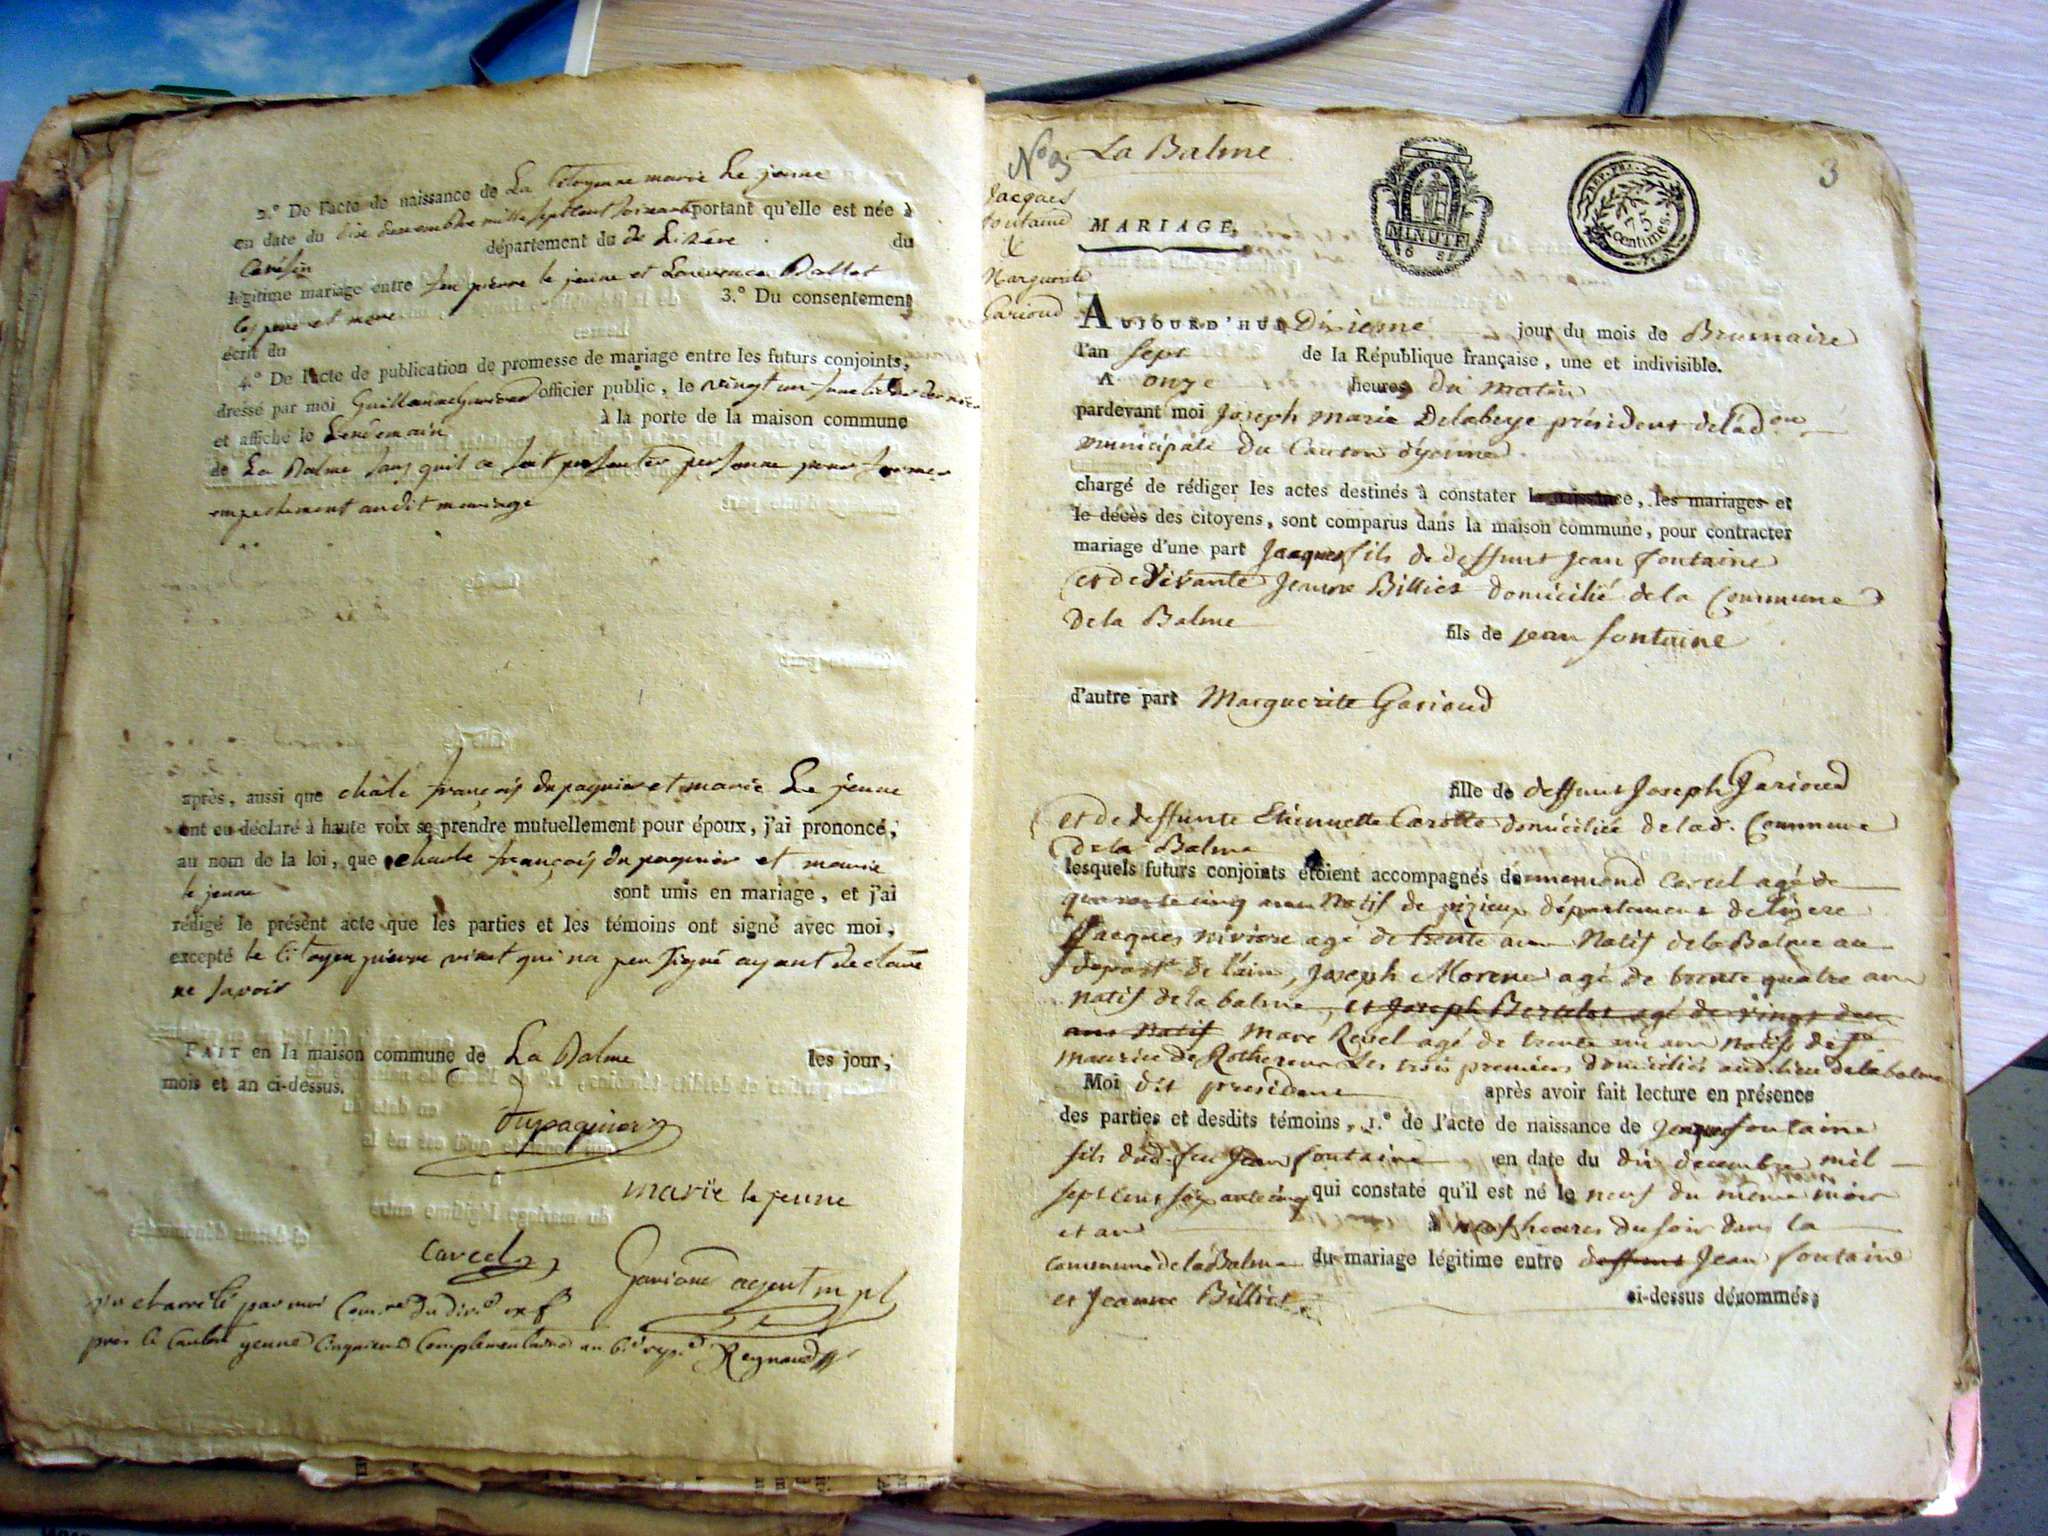 2.° De l'acte de naissance de La Citoyenne marie Le jeune
en date du dix decembre mille sept cent soixante portant qu'elle est née à
département du de Lisére du
légitime mariage entre feu pierre le jeune et Laurence Ballet
3.° Du consentement
les pere et mere
écrit du
4.° De l'acte de publication de promesse de mariage entre les futurs conjoints,
dressé par moi Guillaume officier public, le vingt un dernier
et affiché le Lendemain à la porte de la maison commune
de La Balme sans quil ce soit presenter personne pour former
empechement audit mariage
après, aussi que françois dupaquier et marie Le jeune
ont eu déclaré à haute voix se prendre mutuellement pour époux, j'ai prononcé,
au nom de la loi, que charle françois dupaquier et marie
le jeune sont unis en mariage, et j'ai
rédigé le présent acte que les parties et les témoins ont signé avec moi,
excepté le Citoyen pierre vinet qui na peu signé ayant declaré
ne savoir
FAIT en la maison commune de La Balme les jour,
mois et an ci-dessus.
Dupaquier
marie le jeune
carcel
agent mpl
vu et arrêté par moi
près le Canton yenne Cinquieme Complementaire an 6.e Reynaud
N° 3 La Balme 3
Jacques
fontaine
&
Marguerite
Garioud
MARIAGE,
MINUTE
REP. FRA.
75
centimes.
AUJOURD'HUI Dixieme jour du mois de Brumaire
l'an sept de la République française, une et indivisible.
A onze heures du matin
pardevant moi Joseph Marie Delabeye président de lad.on
municipale du Canton d'yenne
chargé de rédiger les actes destinés à constater la naissance, les mariages et
le décès des citoyens, sont comparus dans la maison commune, pour contracter
mariage d'une part Jacques fils de deffunt Jean fontaine
et de vivante Jeanne Billiet domicilié de la Commune
de la Balme fils de jean fontaine
d'autre part Marguerite Garioud
fille de deffunt Joseph Garioud
et de deffunte Etiennette Carotte domiciliée de lad. Commune
de la Balme
lesquels futurs conjoints étoient accompagnés de nnemond Carcel agé de
quarante cinq ans Natif de département de lizere
Jacques riviere agé de trente ans Natif de la Balme au
depart.t de l'ain, Joseph Morene agé de trente quatre ans
natif de la balme, et Joseph Bertelet agé de vingt deux
ans Natif Marc Revel agé de trente un ans natif de St
maurice de Rotherens Les trois premiers domiciliés aud. lieu de la balme
Moi dit president après avoir fait lecture en présence
des parties et desdits témoins, 1.° de l'acte de naissance de jacques fontaine
fils dud. feu Jean fontaine en date du dix decembre mil
sept cent soixante cinq qui constate qu'il est né le neuf du même mois
et an à neuf heures du soir dans la
commune de la Balme du mariage légitime entre deffunt Jean fontaine
et Jeanne Billiet ci-dessus dénommés;